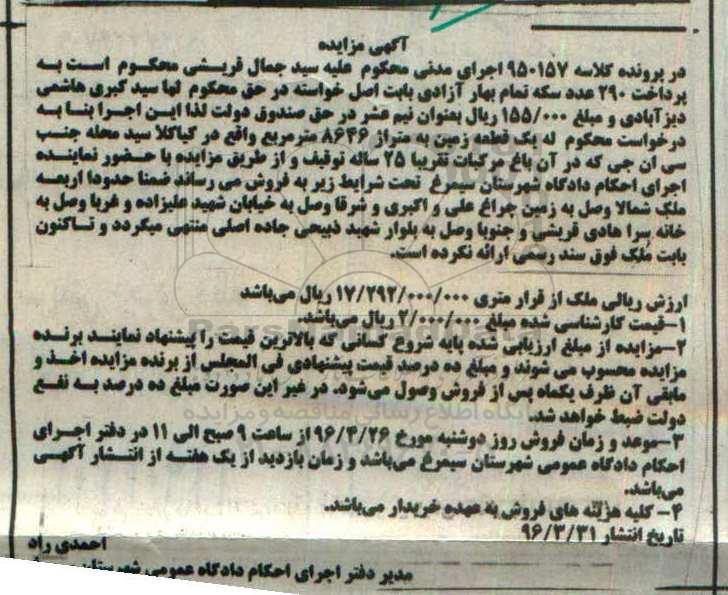 آگهی مزایده
در پرونده کلاسه ۹۵۰۱۵۷ اجرای مدنی محکوم علیه سید جمال قریشی محکوم است به
پرداخت ۲۹۰ عدد سکه تمام بهار آزادی بابت اصل خواسته در حق محکوم لها سید کبری هاشمی
دیزآبادی و مبلغ ۱۵۵/۰۰۰ ریال بعنوان نیم عشر در حق صندوق دولت لذا این اجرا بنا به
درخواست محکوم له یک قطعه زمین به متراژ ۸۶۴۶ مترمربع واقع در کیاکلا سید محله جنب
سی ان جی که در آن باغ مرکبات تقریبا ۲۵ ساله توقیف و از طریق مزایده با حضور نماینده
اجرای احکام دادگاه شهرستان سیمرغ تحت شرایط زیر به فروش می رساند ضمنا حدودا اربعه
ملک شمالا وصل به زمین چراغ علی و اکبری و شرقا وصل به خیابان شهید علیزاده و غربا وصل به
خانه سرا هادی قریشی و جنوبا وصل به بلوار شهید ذبیحی جاده اصلی منتهی میگردد و تاکنون
بابت ملک فوق سند رسمی ارائه نکرده است.
ارزش ریالی ملک از قرار متری ۱۷/۲۹۲/۰۰۰/۰۰۰ ریال می‌باشد
۱-قیمت کارشناسی شده مبلغ ۲/۰۰۰/۰۰۰ ریال می‌باشد.
۲-مزایده از مبلغ ارزیابی شده پایه شروع کسانی که بالاترین قیمت را پیشنهاد نمایند برنده
مزایده محسوب می شوند و مبلغ ده درصد قیمت پیشنهادی فی المجلس از برنده مزایده اخذ و
مابقی آن ظرف یکماه پس از فروش وصول می‌شود. در غیر این صورت مبلغ ده درصد به نفع
دولت ضبط خواهد شد.
۳-موعد و زمان فروش روز دوشنبه مورخ ۹۶/۴/۲۶ از ساعت ۹ صبح الی ۱۱ در دفتر اجرای
احکام دادگاه عمومی شهرستان سیمرغ می‌باشد و زمان بازدید از یک هفته از انتشار آگهی
می‌باشد.
۴- کلیه هزینه های فروش به عهده خریدار می‌باشد.
تاریخ انتشار ۹۶/۳/۳۱
احمدی راد
مدیر دفتر اجرای احکام دادگاه عمومی شهرستان